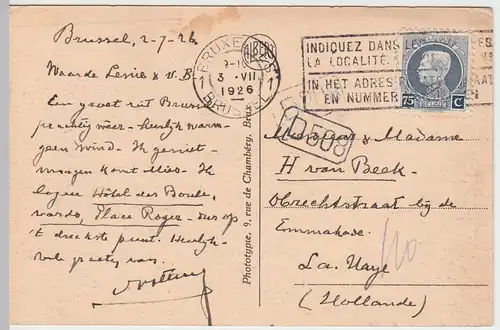 Brussel, 2-7-26
Waarde Lenie & v.B.
Een groet uit Brussel
prachtig weer - heerlijk warm -
geen wind. Ik geniet -
morgen komt Miss. Ik
logeer Hôtel des Boule-
vards, Place Rogier - dus op
't drukste punt.
BRUXELLES
9-1
3 · VII
1926
1 1
BRUSSEL
ALBERT
INDIQUEZ DANS
LA LOCALITÉ.
IN HET ADRES
EN NUMMER
75 C
D808
Phototypie, 9, rue de Chambéry, Brux
Monsieur & Madame
H van Beek
Obrechtstraat bij de
Emmakade.
La Haye
(Hollande)